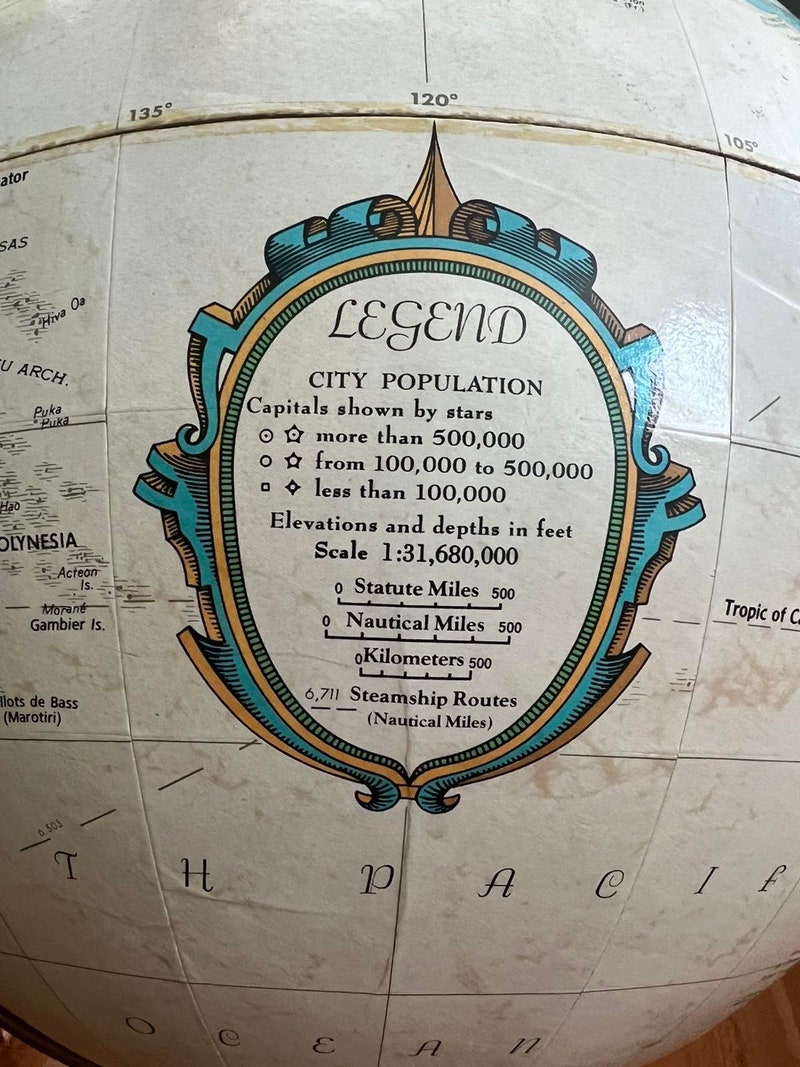 135°
120°
105°
ator
SAS
Hiva Oa
U ARCH.
Puka
Puka
Hao
OLYNESIA
Acteon
Is.
Morane
Gambier Is.
Ilots de Bass
(Marotiri)
LEGEND
CITY POPULATION
Capitals shown by stars
more than 500,000
from 100,000 to 500,000
less than 100,000
Elevations and depths in feet
Scale 1:31,680,000
0 Statute Miles 500
0 Nautical Miles 500
0 Kilometers 500
6,711 Steamship Routes
(Nautical Miles)
Tropic of Ca
TH PACIF
OCEAN